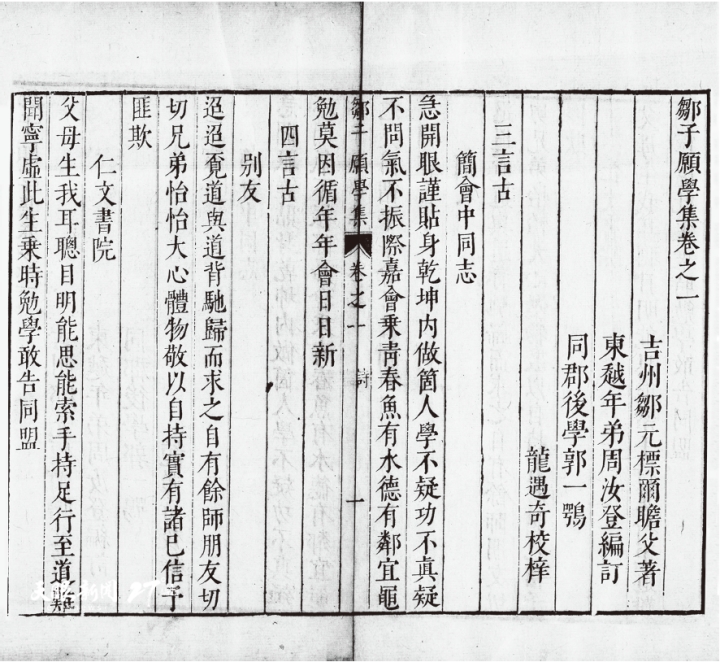 鄒子願學集卷之一
吉州鄒元標爾瞻父著
東越年弟周汝登編訂
同郡後學郭一鶚
龍遇奇校梓
三言古
簡會中同志
急開眼謹貼身乾坤內做箇人學不疑功不眞疑
不問氣不振際嘉會乗靑春魚有水德有鄰宜黽
鄒子願學集 卷之一 詩 一
勉莫因循年年會日日新
四言古
别友
迢迢覔道與道背馳歸而求之自有餘師朋友切
切兄弟怡怡大心體物敬以自持實有諸已信予
匪欺
仁文書院
父母生我耳聰目明能思能索手持足行至道難
聞寧虛此生乗時勉學敢告同盟
新聞